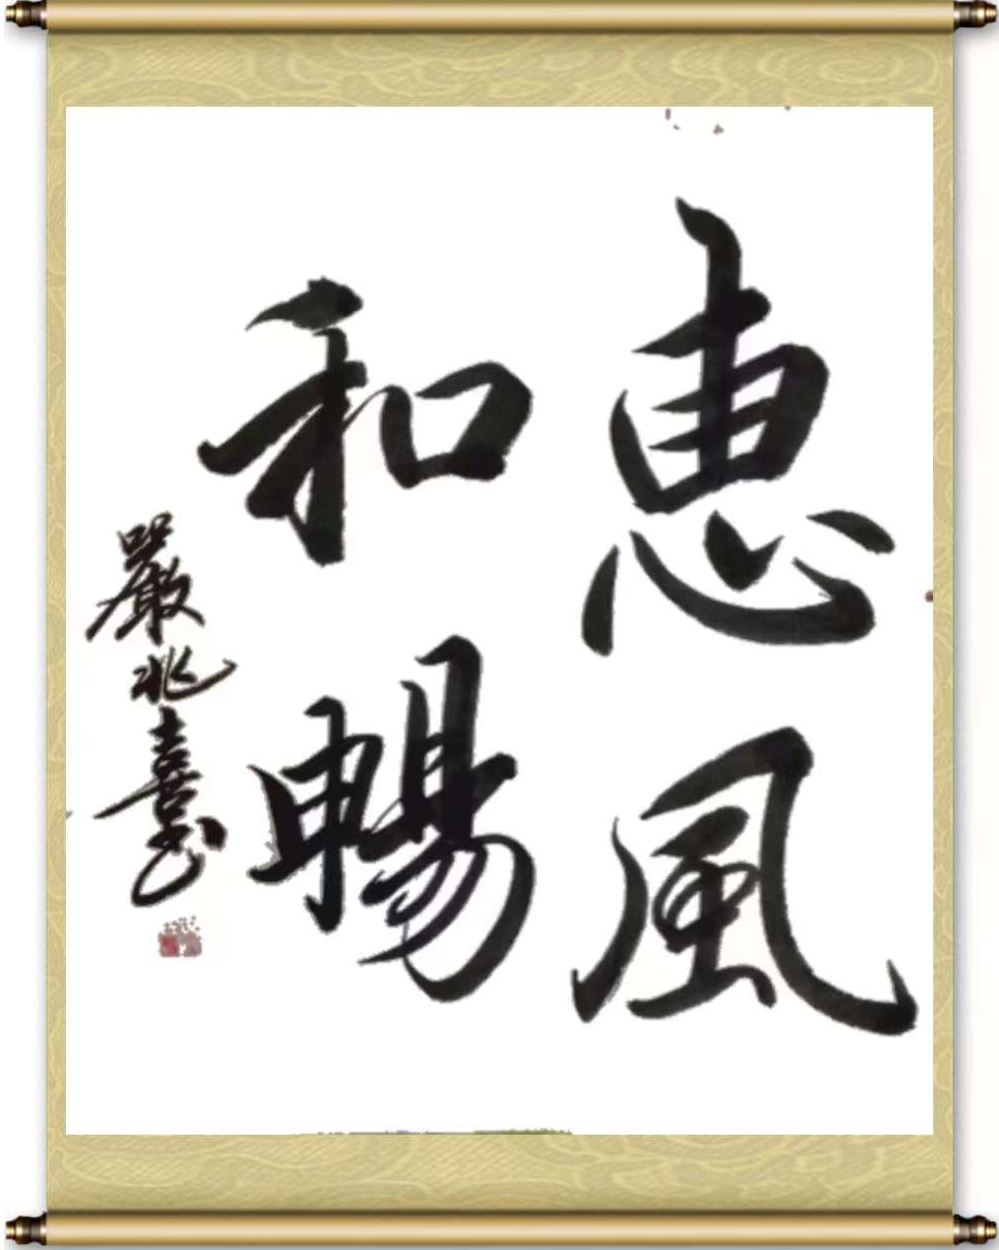 惠風
和暢
嚴兆喜書